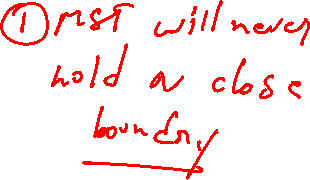 ① MST will never
hold a close
boundry